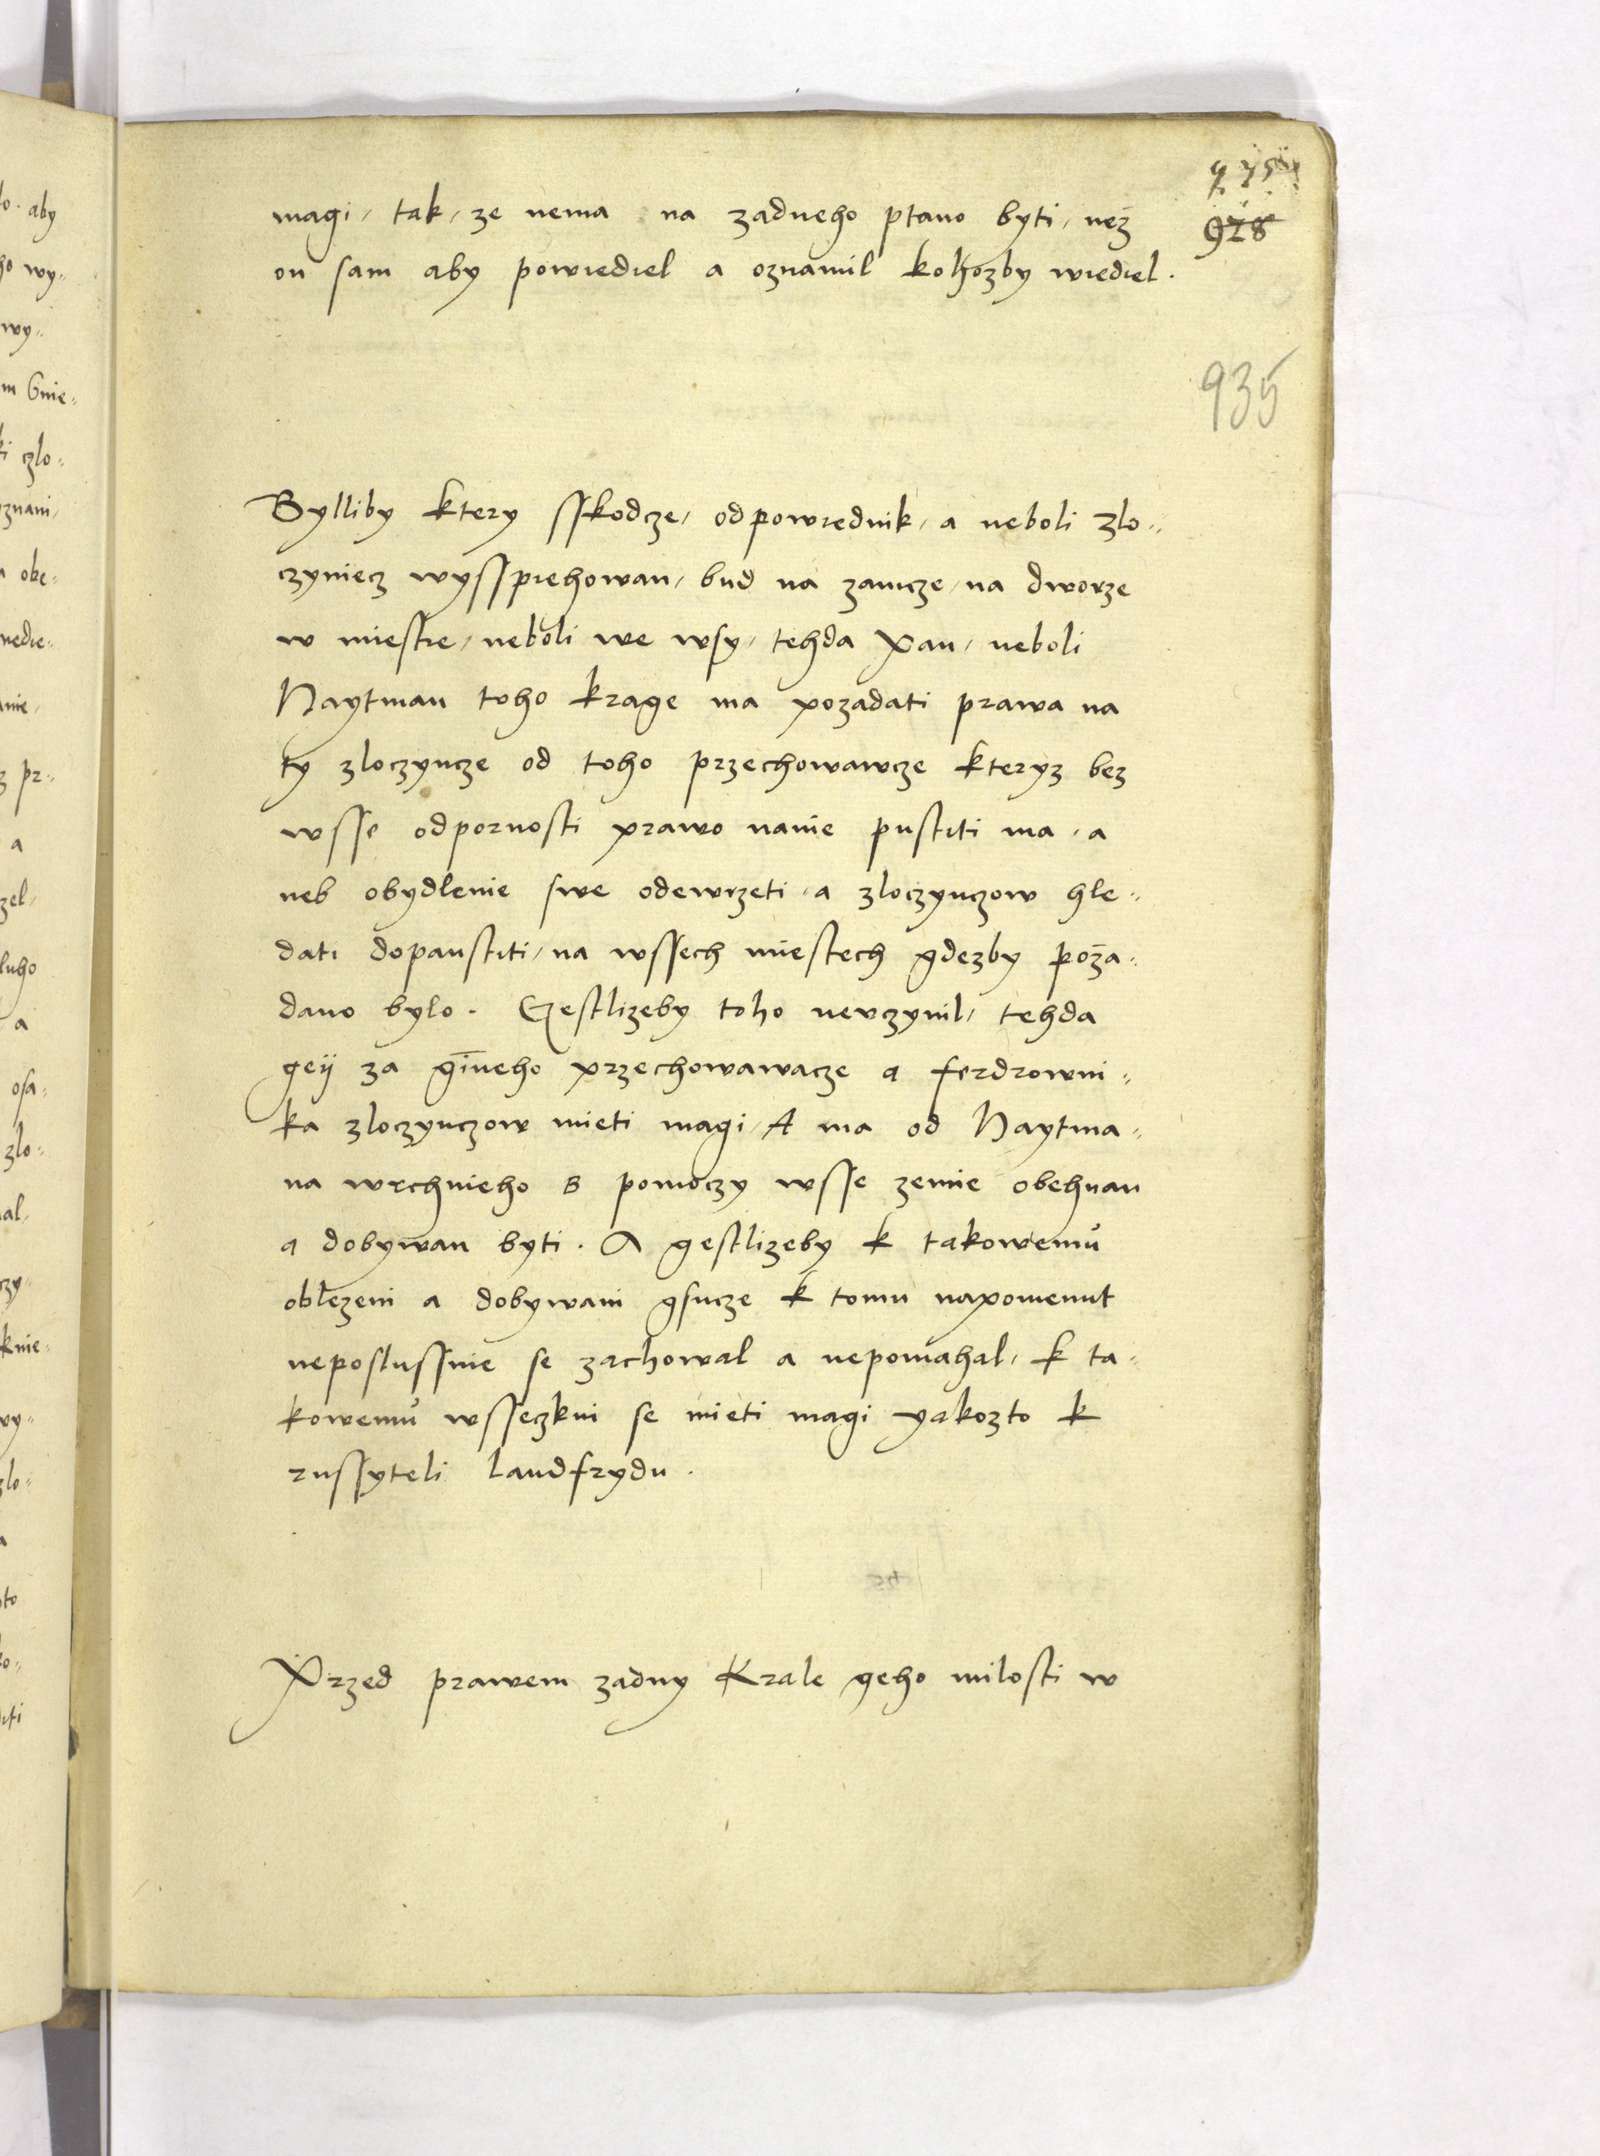 magi, tak, ze nema na zadneho ptano byti, než
on sam aby powiediel a oznamil kohozby wiediel.
928
935
Bylliby ktery sskodcze, odpowiednik, a neboli zlo=
czyniecz wysspiehowan, bud na zamcze, na dworze
w miestie, neboli we wsy, tehda Pan, neboli
Haytman toho krage ma pozadati prawa na
ty zloczyncze od toho przechowawcze kteryz bez
wsse odpornosti prawo nanie pustiti ma, a
neb obydlenie swe odewrzeti, a zloczynczow hle=
dati dopaustiti, na wssech miestech gdezby poža=
dano bylo. Gestlizeby toho neuczynil, tehda
geij za gīneho przechowawacze a ferdrowni=
ka zloczynczow mieti magi, A ma od Haytma=
na wrchnieho s pomoczy wsse zemie obehnan
a dobywan byti. A gestlizeby k takowemů
oblezeni a dobywani gsucze k tomu napomenut
neposlussnie se zachowal a nepomahal, k ta=
kowemů wsseczkni se mieti magi yakozto k
russyteli landfrydu.
Przed prawem zadny Krale geho milosti w
aby
wy=
wy=
Gnie=
zlo=
obe=
a
a
osa=
zlo=